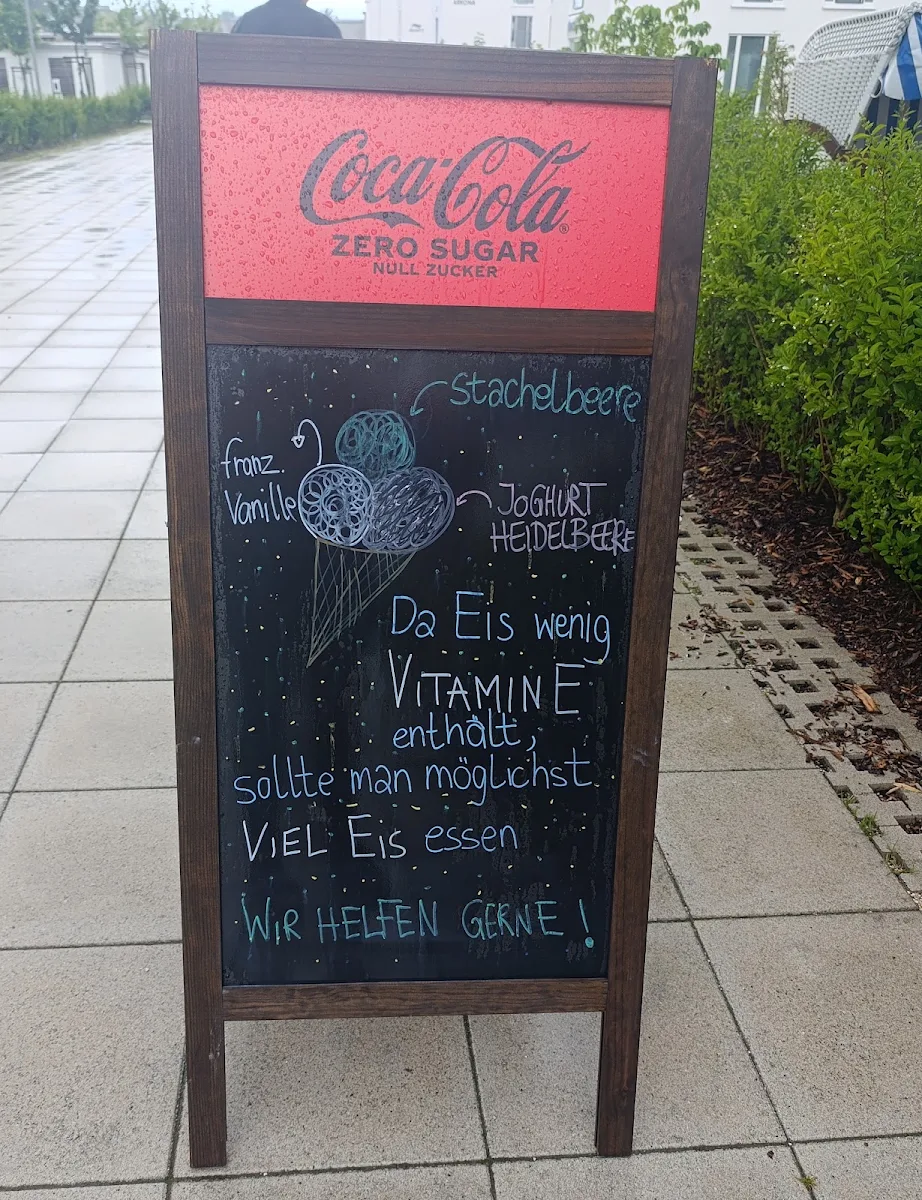 Coca-Cola
ZERO SUGAR
NULL ZUCKER
Stachelbeere
franz.
Vanille
JOGHURT
HEIDELBEERE
Da Eis wenig
VITAMINE
enthält,
sollte man möglichst
VIEL EIS essen
WIR HELFEN GERNE!